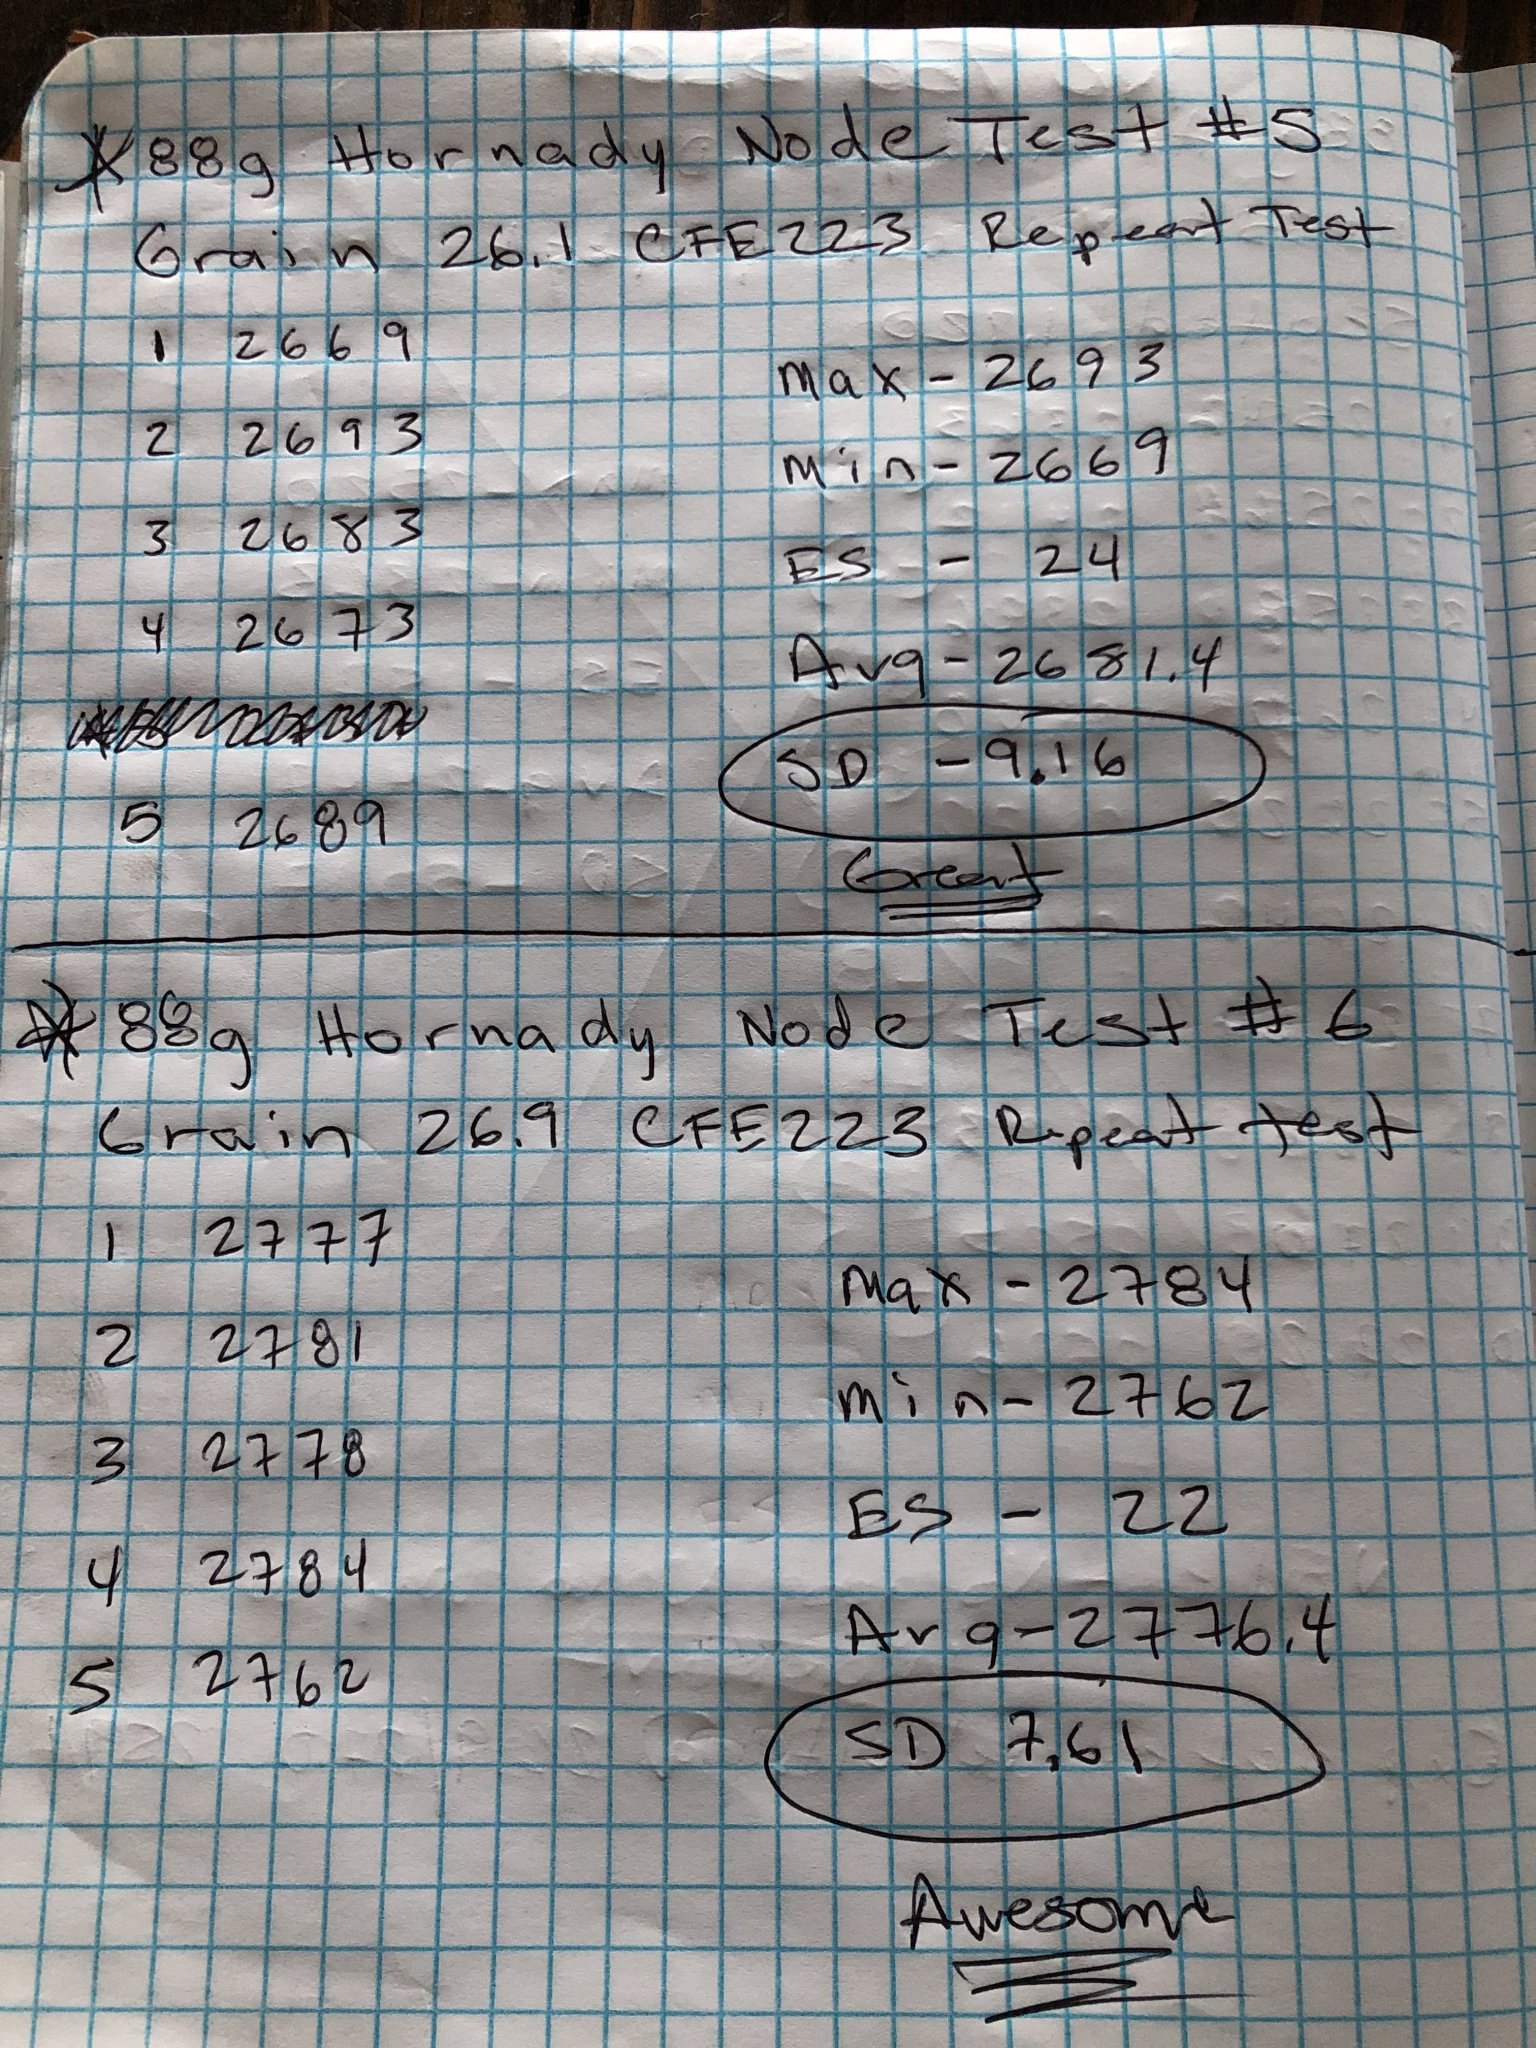 * 88g Hornady Node Test #5
Grain 26.1 CFE223 Repeat Test
1 2669
2 2693
3 2683
4 2673
5 2689
Max - 2693
Min - 2669
ES - 24
Avg - 2681.4
SD - 9.16
Great
* 88g Hornady Node Test #6
Grain 26.9 CFE223 Repeat test
1 2777
2 2781
3 2778
4 2784
5 2762
Max - 2784
Min - 2762
ES - 22
Avg - 2776.4
SD 7.61
Awesome